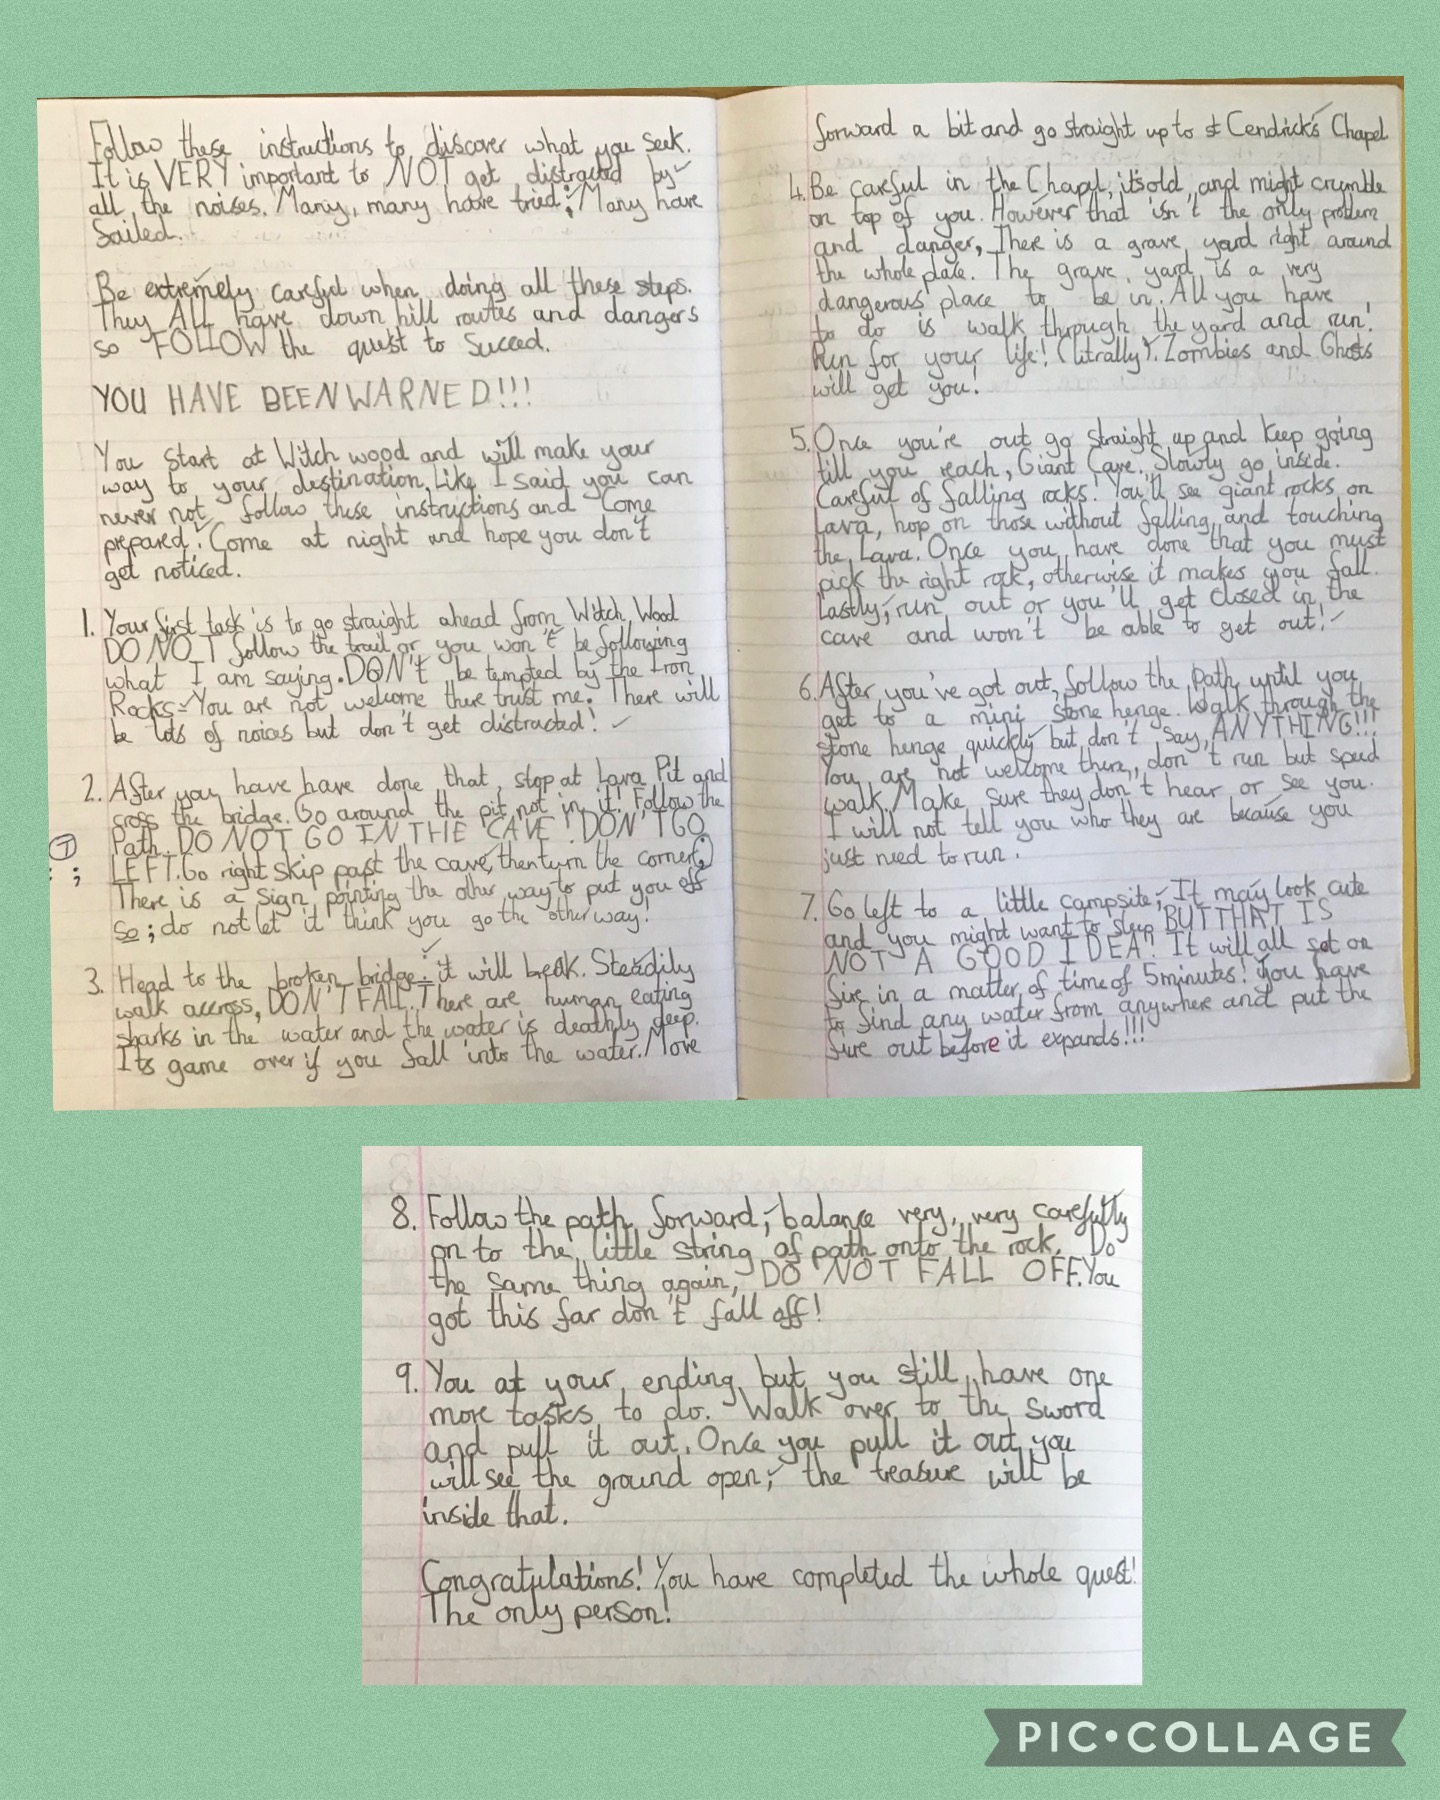 Follow these instructions to discover what you seek.
It is VERY important to NOT get distracted by
all the noises. Many, many have tried; Many have
failed.
Be extremely careful when doing all these steps.
They ALL have down hill routes and dangers
so FOLLOW the quest to Succeed.
YOU HAVE BEEN WARNED!!!
You start at Witch wood and will make your
way to your destination. Like I said you can
never not follow these instructions and Come
prepared! Come at night and hope you don't
get noticed.
1. Your first task is to go straight ahead from Witch Wood
DO NOT follow the trail or you won't be following
what I am saying. DON't be tempted by the Iron
Rocks - You are not welcome there trust me. There will
be lots of noices but don't get distracted!
2. After you have have done that, stop at Lava Pit and
cross the bridge. Go around the pit not in it! Follow the
Path. DO NOT GO IN THE CAVE! DON'T GO
LEFT. Go right skip past the cave, then turn the corner.
There is a sign pointing the other way to put you off
so; do not let it think you go the other way!
3. Head to the broken bridge; it will break. Steadily
walk accross, DON'T FALL. There are human eating
sharks in the water and the water is deathly deep.
Its game over if you fall into the water. Move
forward a bit and go straight up to st Cendrick's Chapel
4. Be careful in the Chapel, its old, and might crumble
on top of you. However that isn't the only problem
and danger, There is a grave yard right around
the whole place. The grave yard is a very
dangerous place to be in. All you have
to do is walk through the yard and run!
Run for your life! (litrally). Zombies and Ghosts
will get you!
5. Once you're out go straight up and keep going
till you reach, Giant Cave. Slowly go inside.
Careful of falling rocks! You'll see giant rocks on
Lava, hop on those without falling and touching
the Lava. Once you have done that you must
pick the right rock, otherwise it makes you fall.
Lastly, run out or you'll get closed in the
cave and won't be able to get out!
6. After you've got out, follow the Path until you
get to a mini stone henge. Walk through the
stone henge quickly but don't say, ANYTHING!!!
You are not welcome there, don't run but speed
walk. Make sure they don't hear or see you.
I will not tell you who they are because you
just need to run.
7. Go left to a little campsite; It may look cute
and you might want to sleep BUT THAT IS
NOT A GOOD IDEA! It will all set on
fire in a matter of time of 5 minutes! You have
to find any water from anywhere and put the
fire out before it expands!!!
8. Follow the path forward; balance very, very carefully
on to the little string of path onto the rock. Do
the same thing again, DO NOT FALL OFF. You
got this far don't fall off!
9. You at your ending but you still have one
more tasks to do. Walk over to the sword
and pull it out. Once you pull it out you
will see the ground open; the treasure will be
inside that.
Congratulations! You have completed the whole quest!
The only person!
PIC•COLLAGE